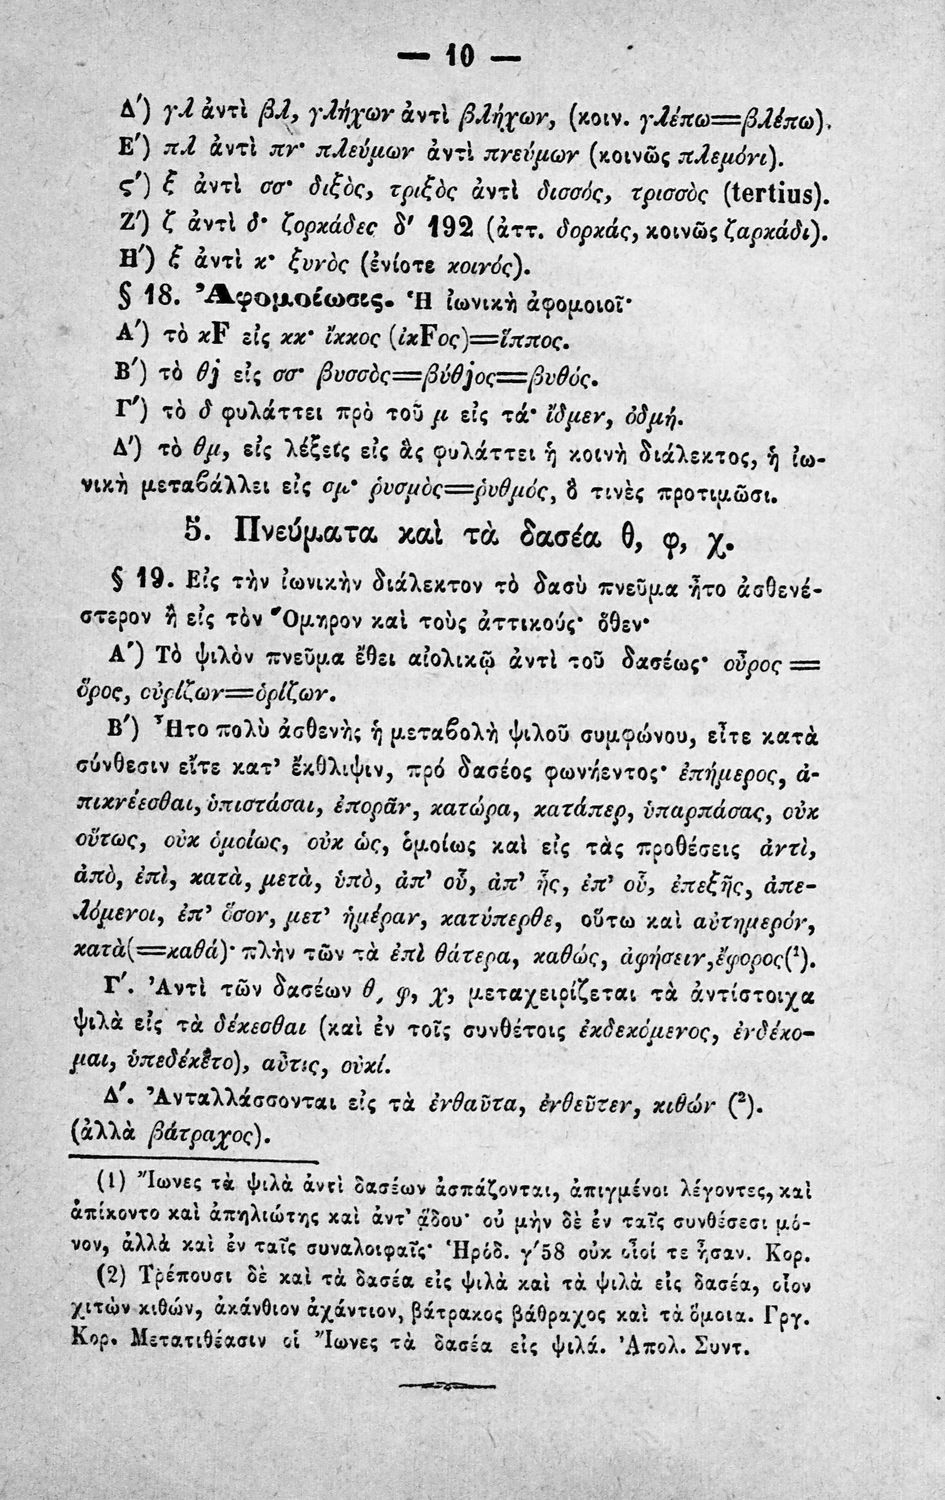 — 10 —
Δ') γλ ἀντὶ βλ, γλήχων ἀντὶ βλήχων, (κοιν. γλέπω=βλέπω).
Ε') πλ ἀντὶ πν· πλεύμων ἀντὶ πνεύμων (κοινῶς πλεμόνι).
ς') ξ ἀντὶ σσ· διξὸς, τριξὸς ἀντὶ δισσός, τρισσὸς (tertius).
Ζ') ζ ἀντὶ δ· ζορκάδες δ' 192 (ἀττ. δορκάς, κοινῶς ζαρκάδι).
Η') ξ ἀντὶ κ· ξυνὸς (ἐνίοτε κοινός).
§ 18. Ἀφομοίωσις. Ἡ ἰωνικὴ ἀφομοιοῖ·
Α') τὸ κF εἰς κκ· ἴκκος (ἰκFος)=ἵππος.
Β') τὸ θj εἰς σσ· βυσσὸς=βύθjος=βυθός.
Γ') τὸ δ φυλάττει πρὸ τοῦ μ εἰς τά· ἴδμεν, ὀδμή.
Δ') τὸ θμ, εἰς λέξεις εἰς ἃς φυλάττει ἡ κοινὴ διάλεκτος, ἡ ἰω-
νικὴ μεταβάλλει εἰς σμ· ῥυσμὸς=ῥυθμός, ὃ τινὲς προτιμῶσι.
5. Πνεύματα καὶ τὰ δασέα θ, φ, χ.
§ 19. Εἰς τὴν ἰωνικὴν διάλεκτον τὸ δασὺ πνεῦμα ἦτο ἀσθενέ-
στερον ἢ εἰς τὸν Ὅμηρον καὶ τοὺς ἀττικούς· ὅθεν·
Α') Τὸ ψιλὸν πνεῦμα ἔθει αἰολικῷ ἀντὶ τοῦ δασέως· οὖρος =
ὅρος, οὐρίζων=ὁρίζων.
Β') Ἦτο πολὺ ἀσθενὴς ἡ μεταβολὴ ψιλοῦ συμφώνου, εἶτε κατὰ
σύνθεσιν εἴτε κατ' ἔκθλιψιν, πρό δασέος φωνήεντος· ἐπήμερος, ἀ-
πικνέεσθαι, ὑπιστάσαι, ἐπορᾶν, κατώρα, κατάπερ, ὑπαρπάσας, οὐκ
οὕτως, οὐκ ὁμοίως, οὐκ ὡς, ὁμοίως καὶ εἰς τὰς προθέσεις ἀντὶ,
ἀπὸ, ἐπὶ, κατὰ, μετὰ, ὑπὸ, ἀπ' οὗ, ἀπ' ἧς, ἐπ' οὗ, ἐπεξῆς, ἀπε-
λόμενοι, ἐπ' ὅσον, μετ' ἡμέραν, κατύπερθε, οὕτω καὶ αὐτημερόν,
κατὰ(=καθά)· πλὴν τῶν τὰ ἐπὶ θάτερα, καθώς, ἀφήσειν, ἔφορος(¹).
Γ'. Ἀντὶ τῶν δασέων θ, φ, χ, μεταχειρίζεται τὰ ἀντίστοιχα
ψιλὰ εἰς τὰ δέκεσθαι (καὶ ἐν τοῖς συνθέτοις ἐκδεκόμενος, ἐνδέκο-
μαι, ὑπεδέκετο), αὖτις, οὐκί.
Δ'. Ἀνταλλάσσονται εἰς τὰ ἐνθαῦτα, ἐνθεῦτεν, κιθών (²).
(ἀλλὰ βάτραχος).
(1) Ἴωνες τὰ ψιλὰ ἀντὶ δασέων ἀσπάζονται, ἀπιγμένοι λέγοντες, καὶ
ἀπίκοντο καὶ ἀπηλιώτης καὶ ἀντ' ᾅδου· οὐ μὴν δὲ ἐν ταῖς συνθέσεσι μό-
νον, ἀλλὰ καὶ ἐν ταῖς συναλοιφαῖς· Ἡρόδ. γ'58 οὐκ οἷοί τε ἦσαν. Κορ.
(2) Τρέπουσι δὲ καὶ τὰ δασέα εἰς ψιλὰ καὶ τὰ ψιλὰ εἰς δασέα, οἷον
χιτὼν κιθών, ἀκάνθιον ἀχάντιον, βάτρακος βάθραχος καὶ τὰ ὅμοια. Γργ.
Κορ. Μετατιθέασιν οἱ Ἴωνες τὰ δασέα εἰς ψιλά. Ἀπολ. Συντ.